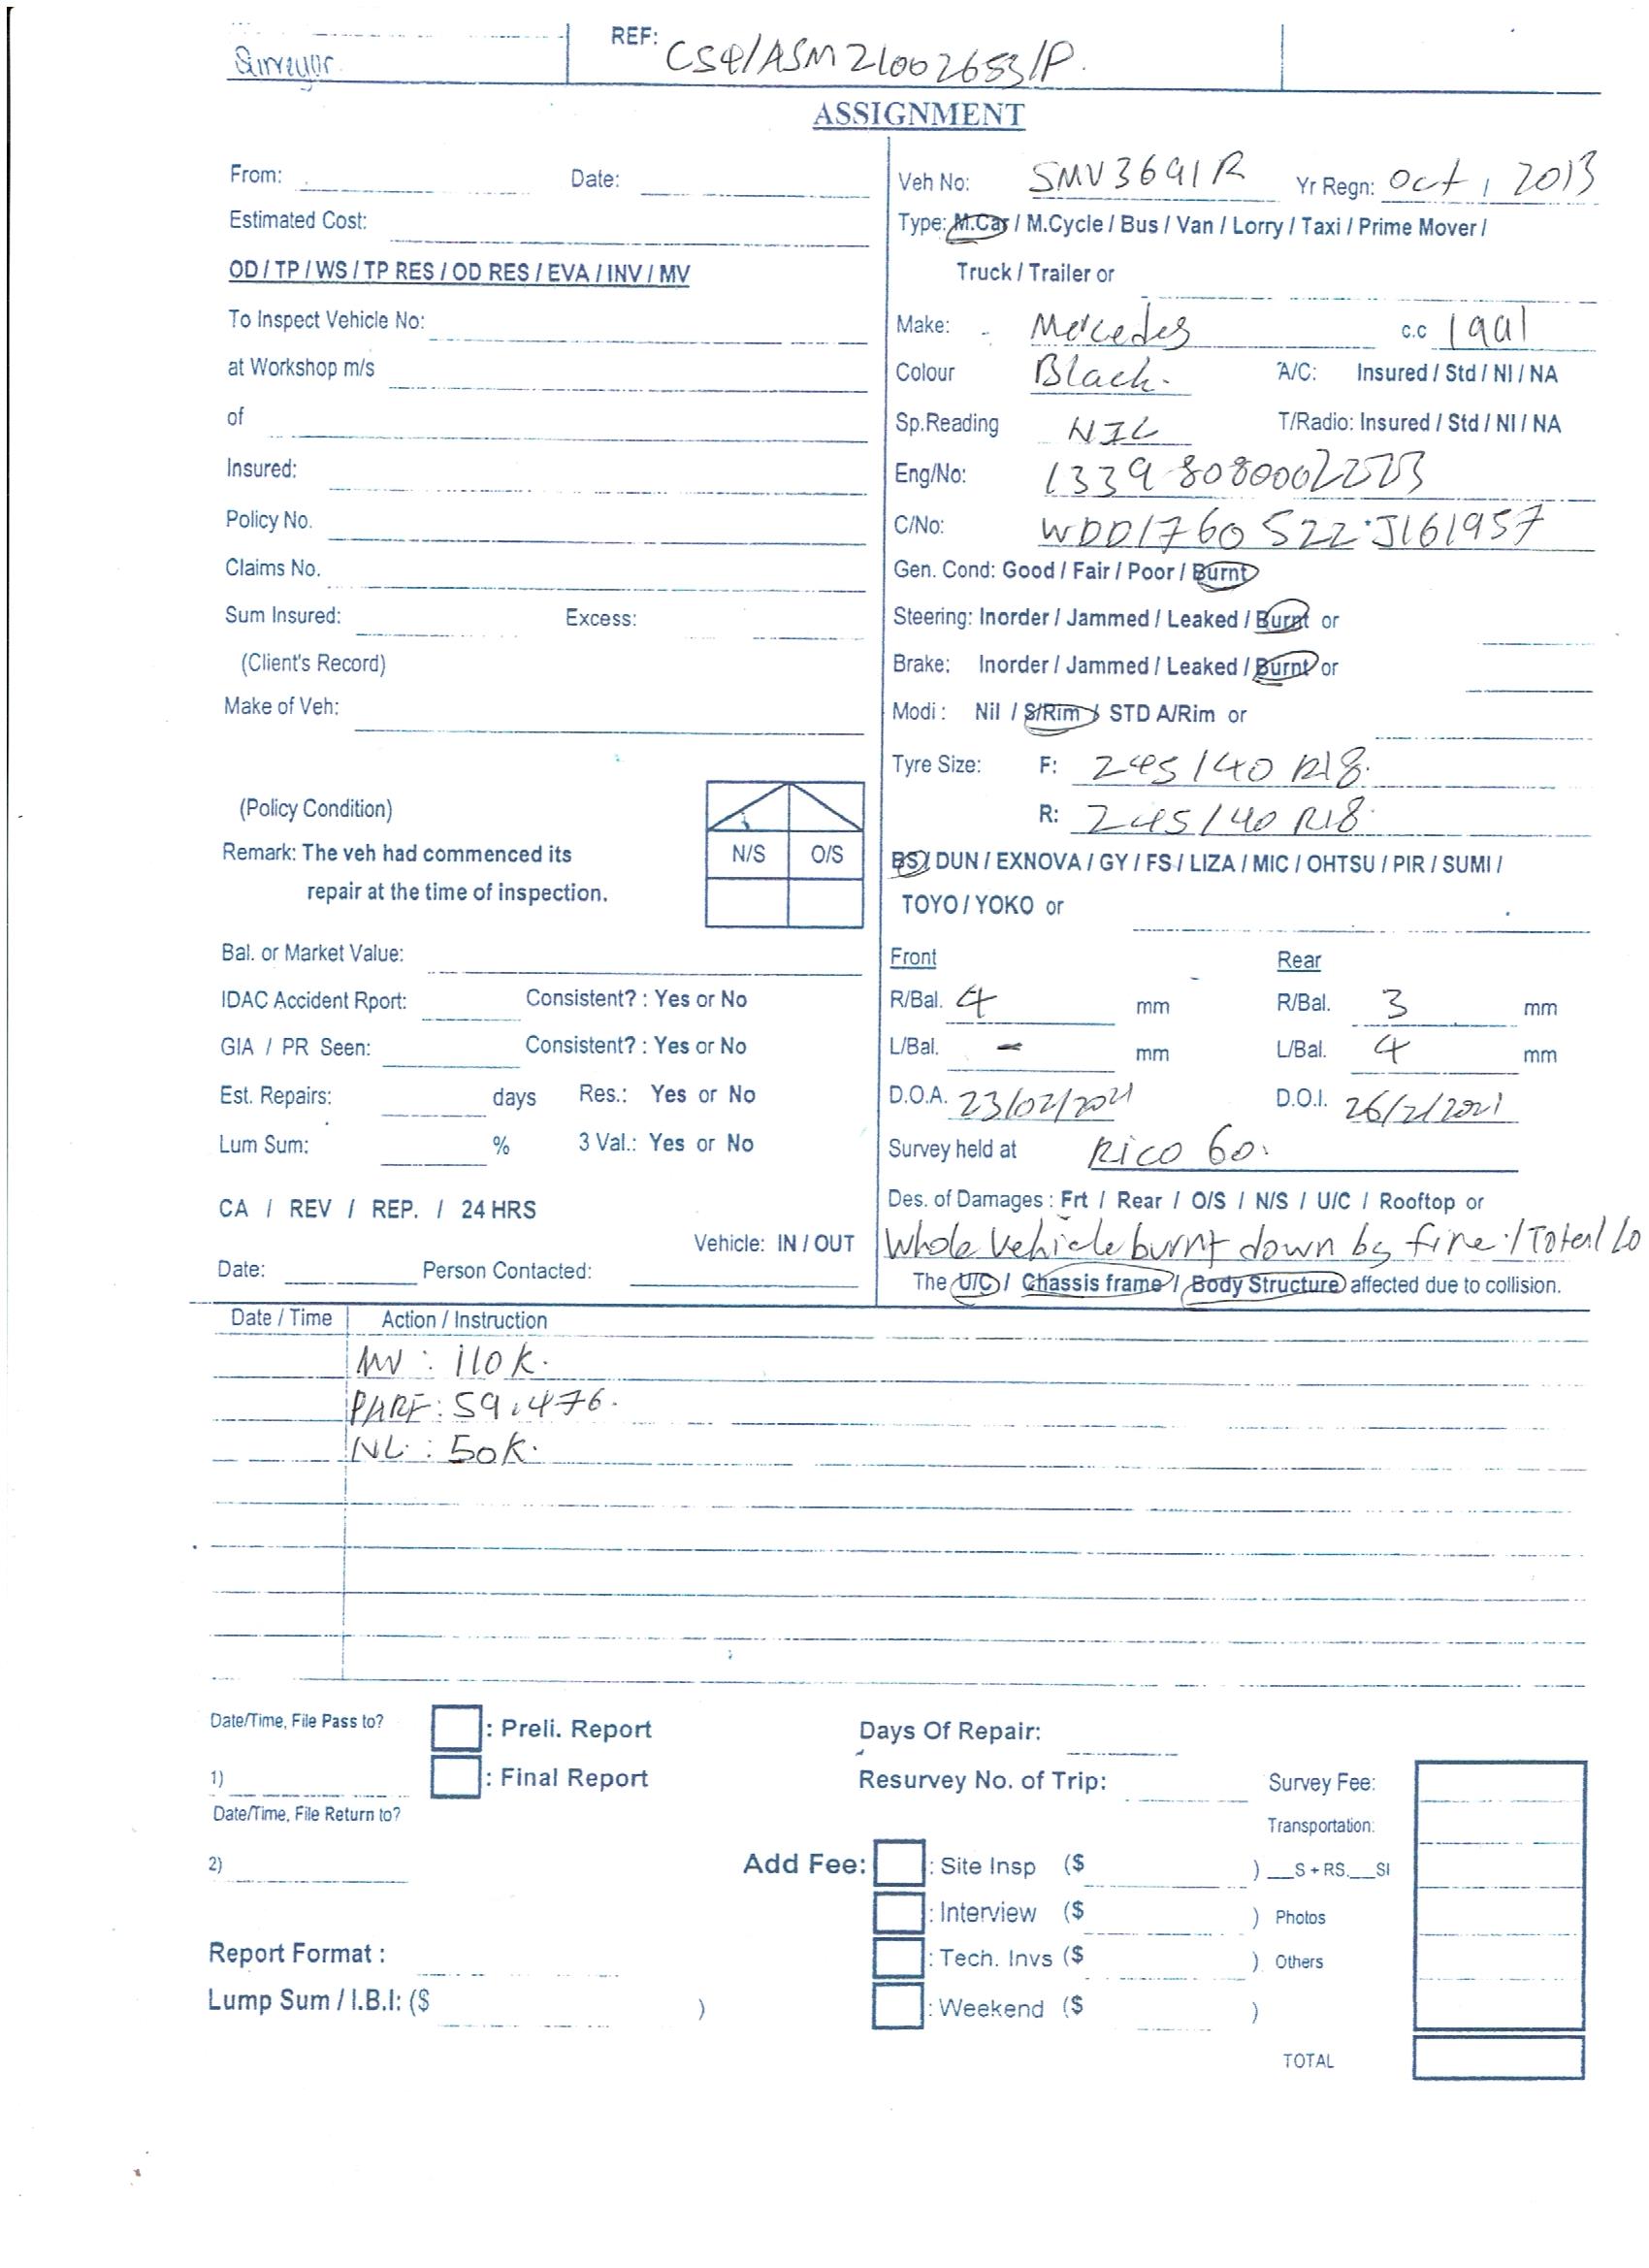 Surveyor
REF: CS4/ASM21002653/P.
ASSIGNMENT
From: Date:
Estimated Cost:
OD / TP / WS / TP RES / OD RES / EVA / INV / MV
To Inspect Vehicle No:
at Workshop m/s
of
Insured:
Policy No.
Claims No.
Sum Insured: Excess:
(Client's Record)
Make of Veh:
(Policy Condition)
Remark: The veh had commenced its
repair at the time of inspection.
N/S O/S
Bal. or Market Value:
IDAC Accident Rport: Consistent? : Yes or No
GIA / PR Seen: Consistent? : Yes or No
Est. Repairs: days Res.: Yes or No
Lum Sum: % 3 Val.: Yes or No
CA / REV / REP. / 24 HRS
Vehicle: IN / OUT
Date: Person Contacted:
Veh No: SMV3691R Yr Regn: Oct, 2013
Type: M.Car / M.Cycle / Bus / Van / Lorry / Taxi / Prime Mover /
Truck / Trailer or
Make: Mercedes c.c 1991
Colour Black. A/C: Insured / Std / NI / NA
Sp.Reading NIL T/Radio: Insured / Std / NI / NA
Eng/No: 13398080002273
C/No: WDD1760522J161957
Gen. Cond: Good / Fair / Poor / Burnt
Steering: Inorder / Jammed / Leaked / Burnt or
Brake: Inorder / Jammed / Leaked / Burnt or
Modi: Nil / S/Rim / STD A/Rim or
Tyre Size: F: 245/40 R18.
R: 245/40 R18.
BS / DUN / EXNOVA / GY / FS / LIZA / MIC / OHTSU / PIR / SUMI /
TOYO / YOKO or
Front Rear
R/Bal. 4 mm R/Bal. 3 mm
L/Bal. - mm L/Bal. 4 mm
D.O.A. 23/02/2021 D.O.I. 26/2/2021
Survey held at Rico 60.
Des. of Damages : Frt / Rear / O/S / N/S / U/C / Rooftop or
Whole vehicle burnt down by fire. / Total Lo
The U/C / Chassis frame / Body Structure affected due to collision.
Date / Time Action / Instruction
MV : 110K.
PARF : 59,476.
NL : 50K.
Date/Time, File Pass to? : Preli. Report Days Of Repair:
1) : Final Report Resurvey No. of Trip: Survey Fee:
Date/Time, File Return to? Transportation:
2) Add Fee: : Site Insp ($ ) __S + RS.__SI
: Interview ($ ) Photos
Report Format : : Tech. Invs ($ ) Others
Lump Sum / I.B.I: ($ ) : Weekend ($ )
TOTAL